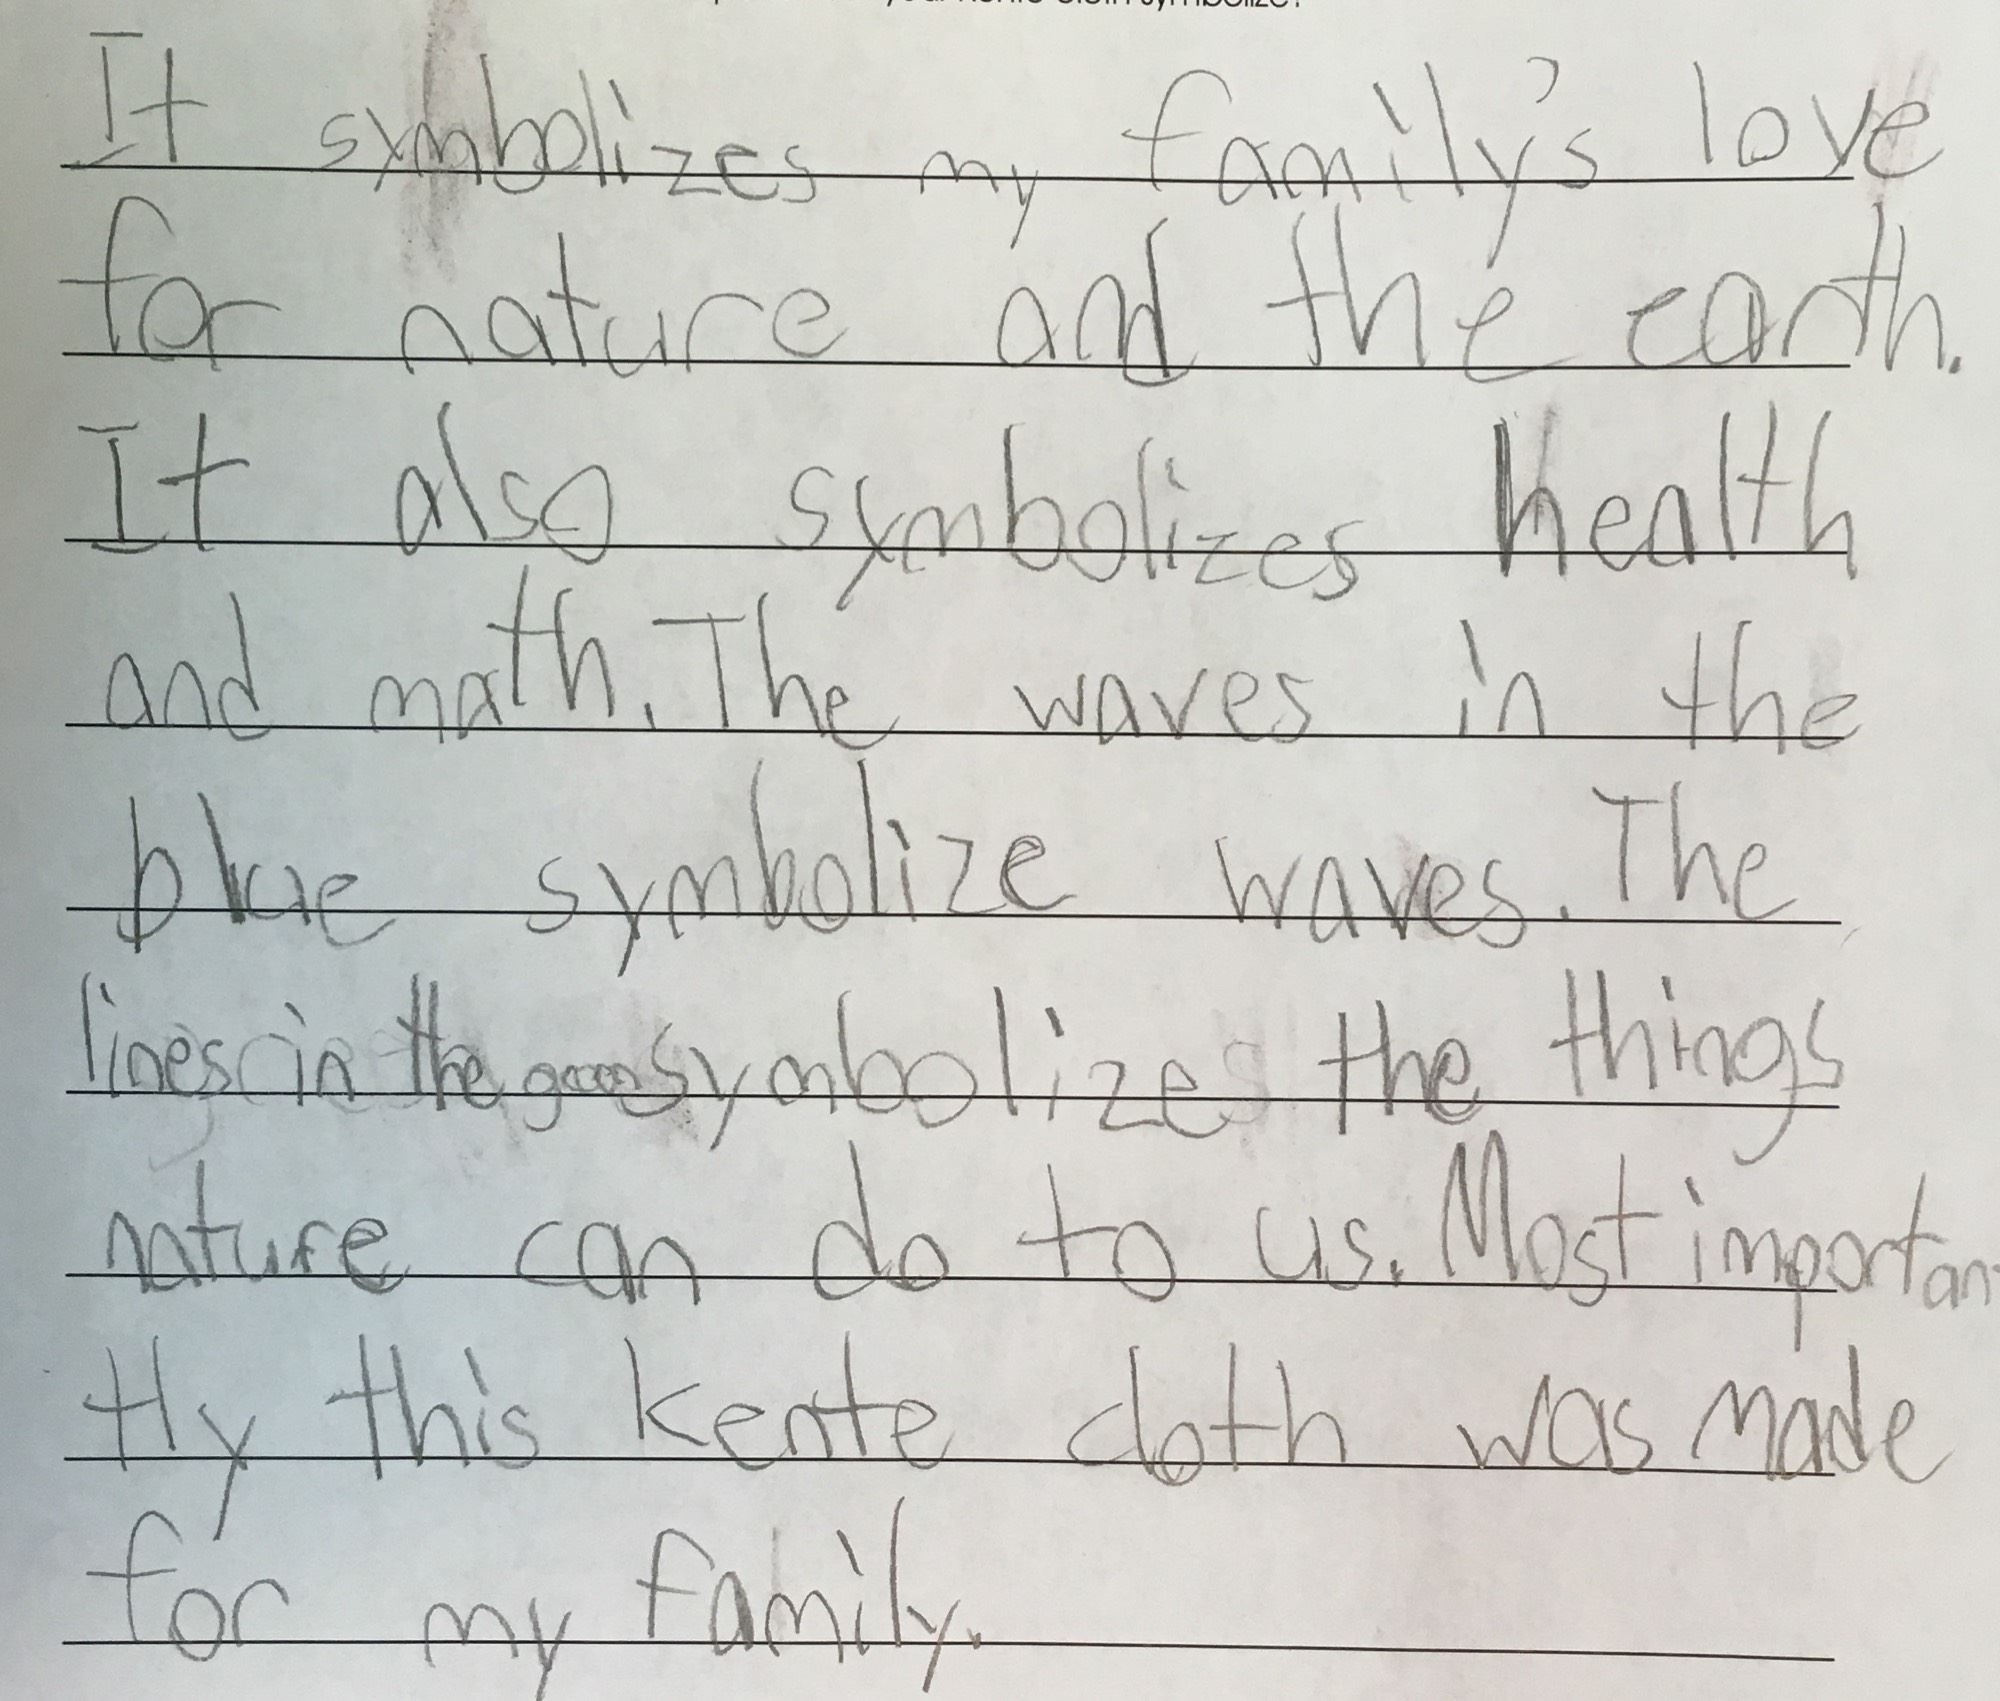 your kente cloth symbolize?
It symbolizes my family's love
for nature and the earth.
It also symbolizes health
and math. The waves in the
blue symbolize waves. The
lines in the symbolize the things
nature can do to us. Most importan
tly this kente cloth was made
for my family.